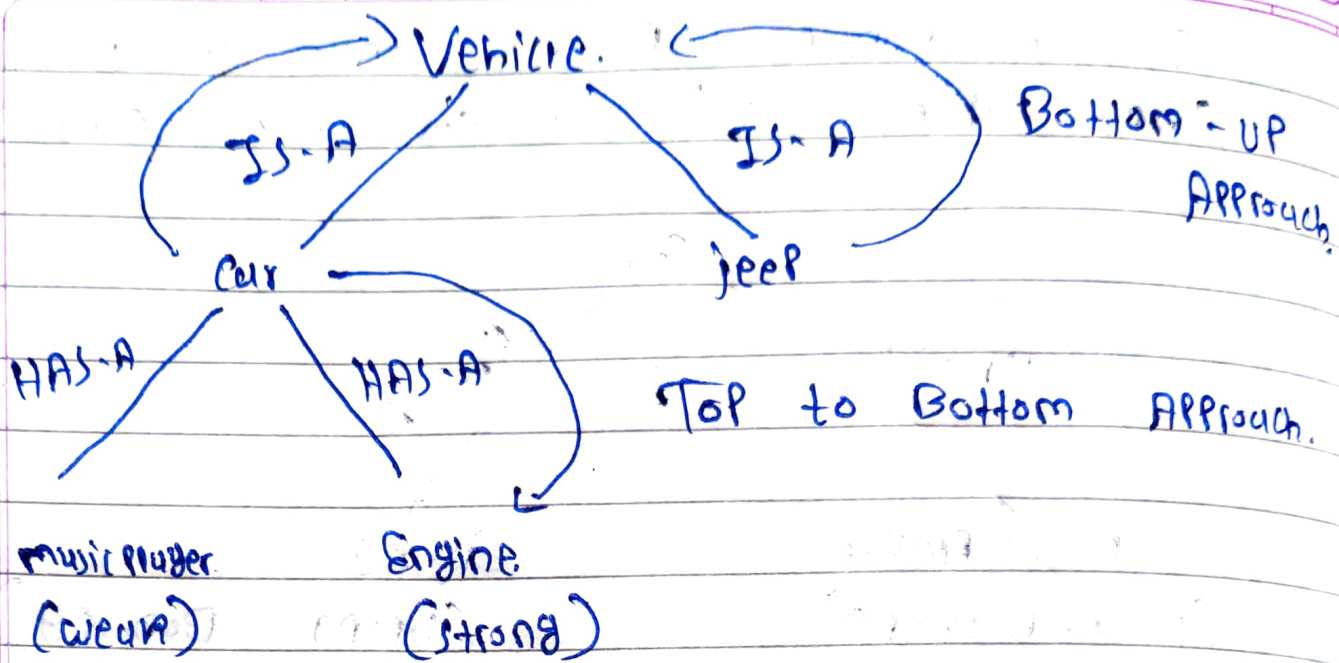 Vehicle.
IS-A
IS-A
Bottom-UP
Approach.
Car
jeep
HAS-A
HAS-A
Top to Bottom Approach.
music player
Engine
(weak)
(strong)